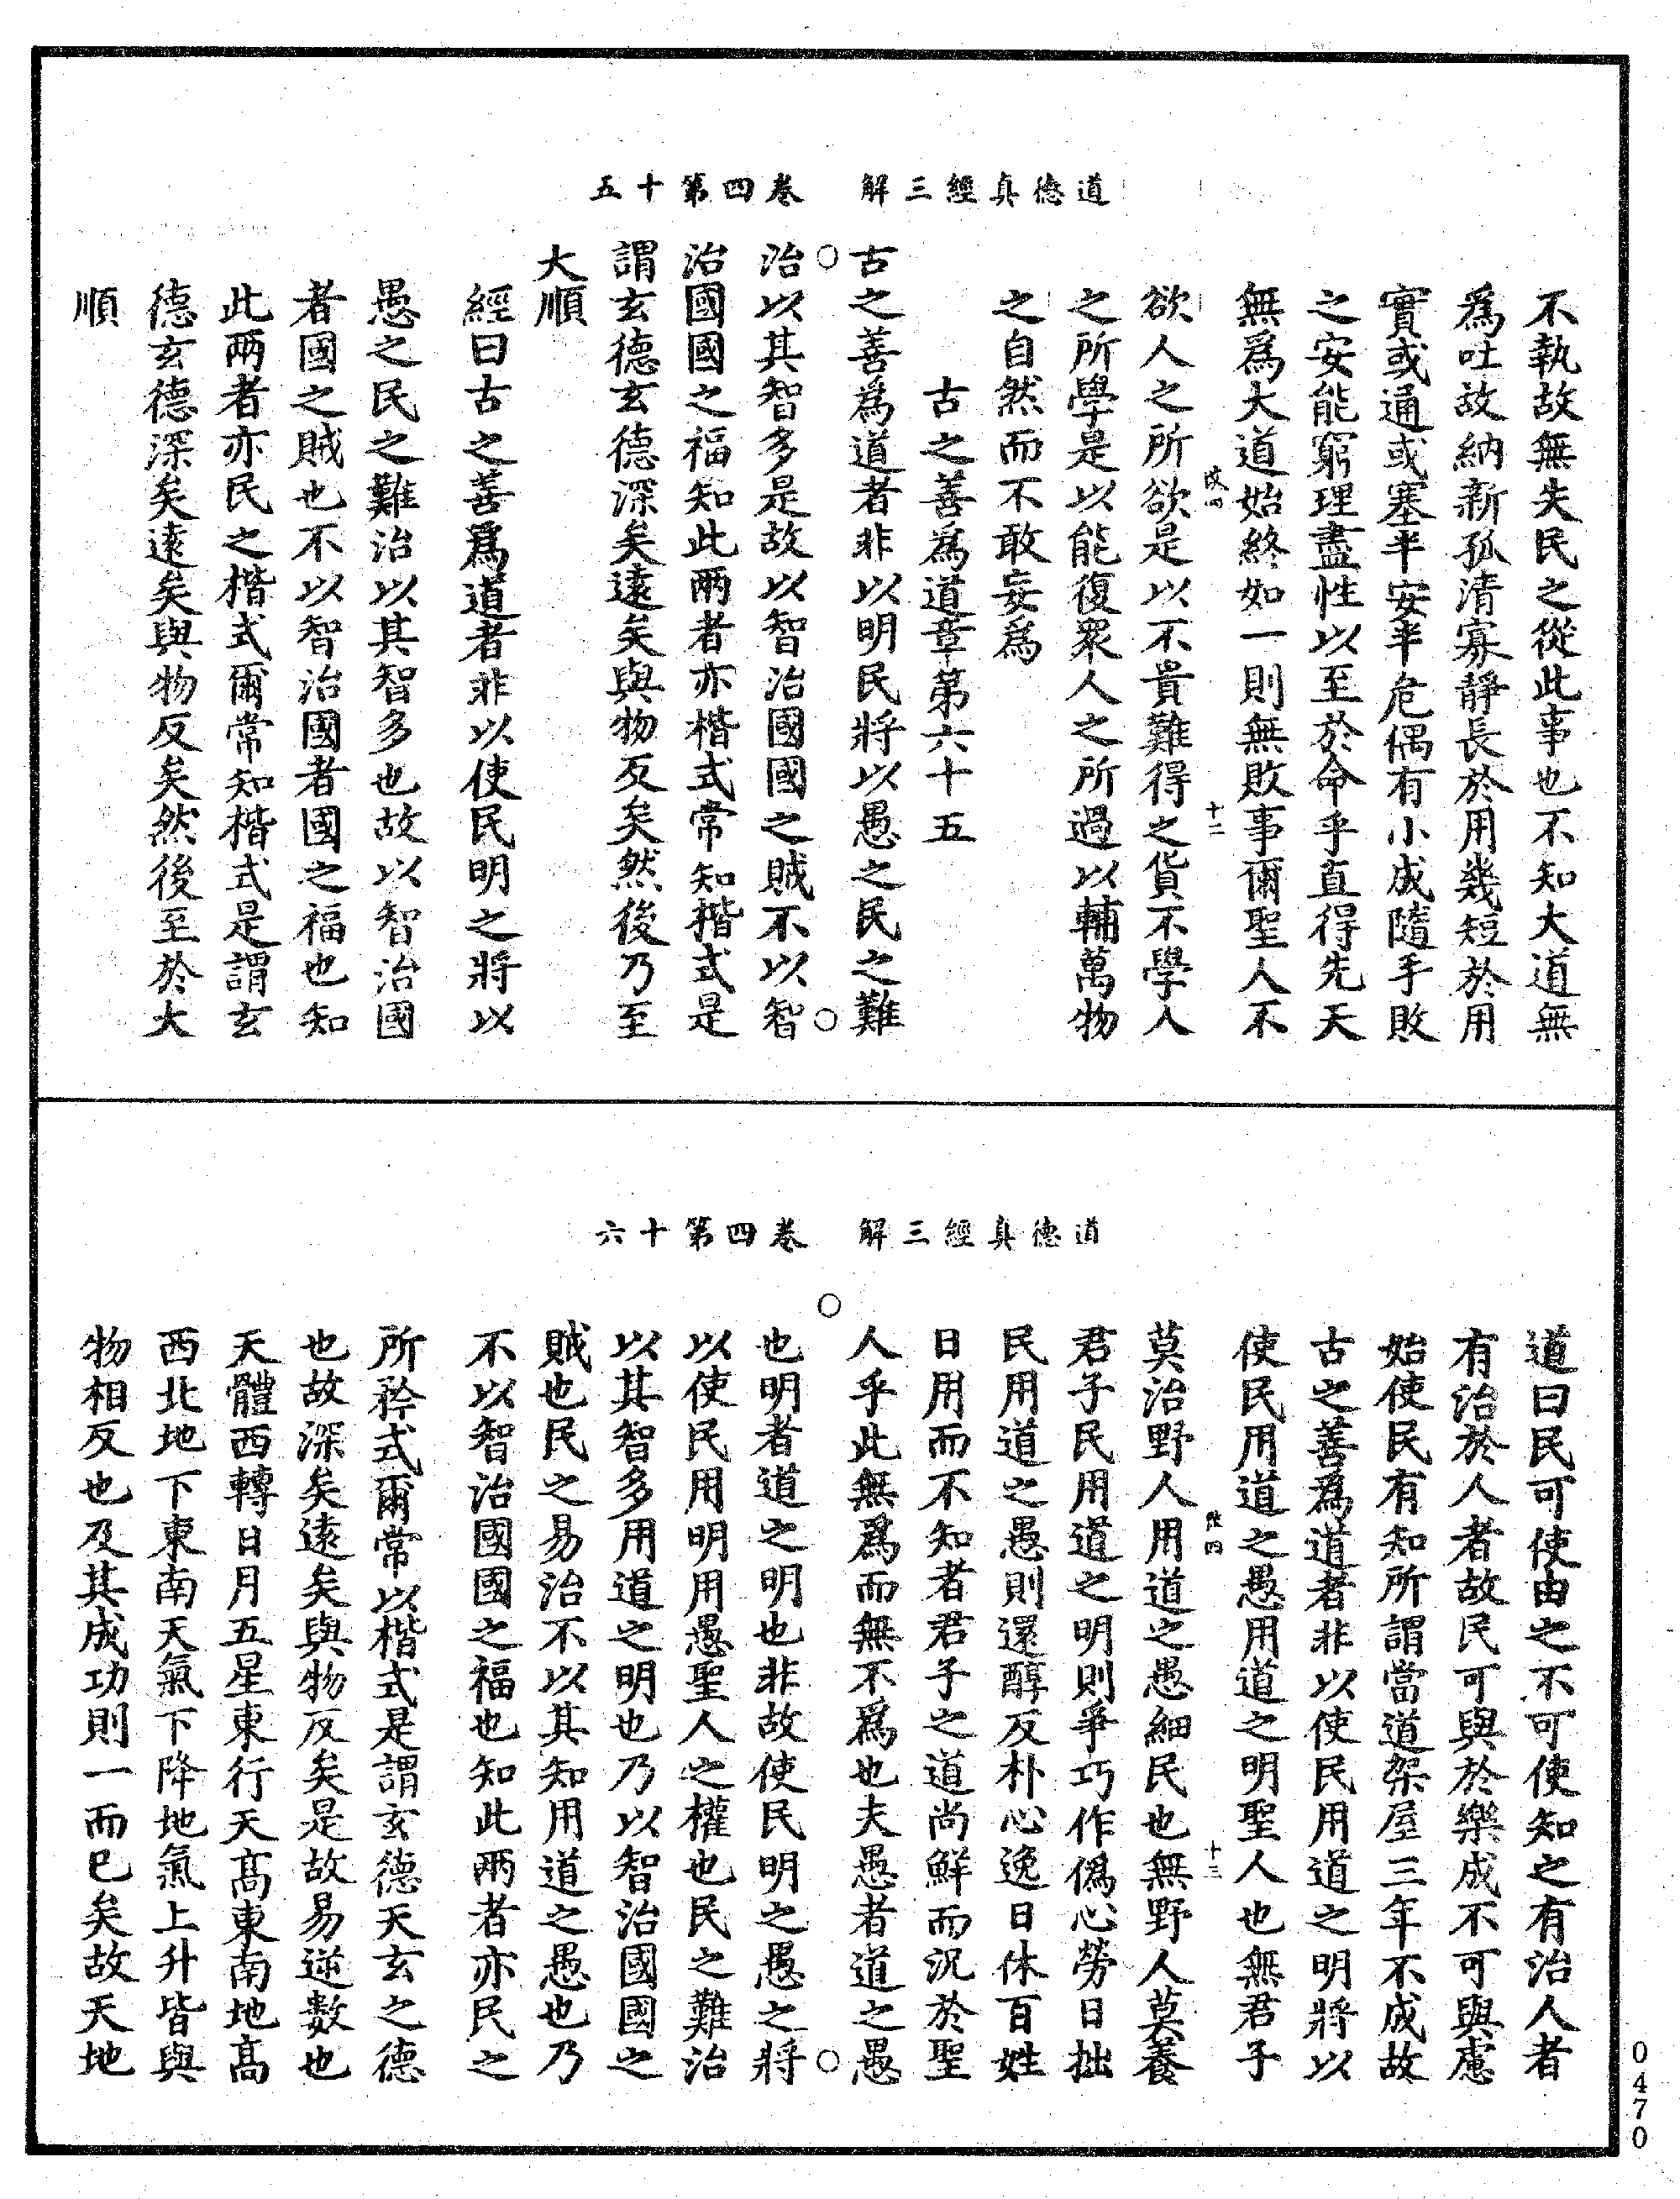 道德真經三解　卷四第十五
不執故無失民之從此事也不知大道無
爲吐故納新孤清寡靜長於用幾短於用
實或通或塞半安半危偶有小成隨手敗
之安能窮理盡性以至於命乎直得先天
無爲大道始終如一則無敗事爾聖人不
改四　十二
欲人之所欲是以不貴難得之貨不學人
之所學是以能復眾人之所過以輔萬物
之自然而不敢妄爲
古之善爲道章第六十五
古之善爲道者非以明民將以愚之民之難
治以其智多是故以智治國國之賊不以智
治國國之福知此兩者亦楷式常知楷式是
謂玄德玄德深矣遠矣與物反矣然後乃至
大順
經曰古之善爲道者非以使民明之將以
愚之民之難治以其智多也故以智治國
者國之賊也不以智治國者國之福也知
此兩者亦民之楷式爾常知楷式是謂玄
德玄德深矣遠矣與物反矣然後至於大
順
道德真經三解　卷四第十六
道曰民可使由之不可使知之有治人者
有治於人者故民可與於樂成不可與慮
始使民有知所謂當道架屋三年不成故
古之善爲道者非以使民用道之明將以
使民用道之愚用道之明聖人也無君子
改四　十三
莫治野人用道之愚細民也無野人莫養
君子民用道之明則爭巧作僞心勞日拙
民用道之愚則還醇反朴心逸日休百姓
日用而不知者君子之道尚鮮而況於聖
人乎此無爲而無不爲也夫愚者道之愚
也明者道之明也非故使民明之愚之將
以使民用明用愚聖人之權也民之難治
以其智多用道之明也乃以智治國國之
賊也民之易治不以其知用道之愚也乃
不以智治國國之福也知此兩者亦民之
所矜式爾常以楷式是謂玄德天玄之德
也故深矣遠矣與物反矣是故易逆數也
天體西轉日月五星東行天高東南地高
西北地下東南天氣下降地氣上升皆與
物相反也及其成功則一而已矣故天地
0470